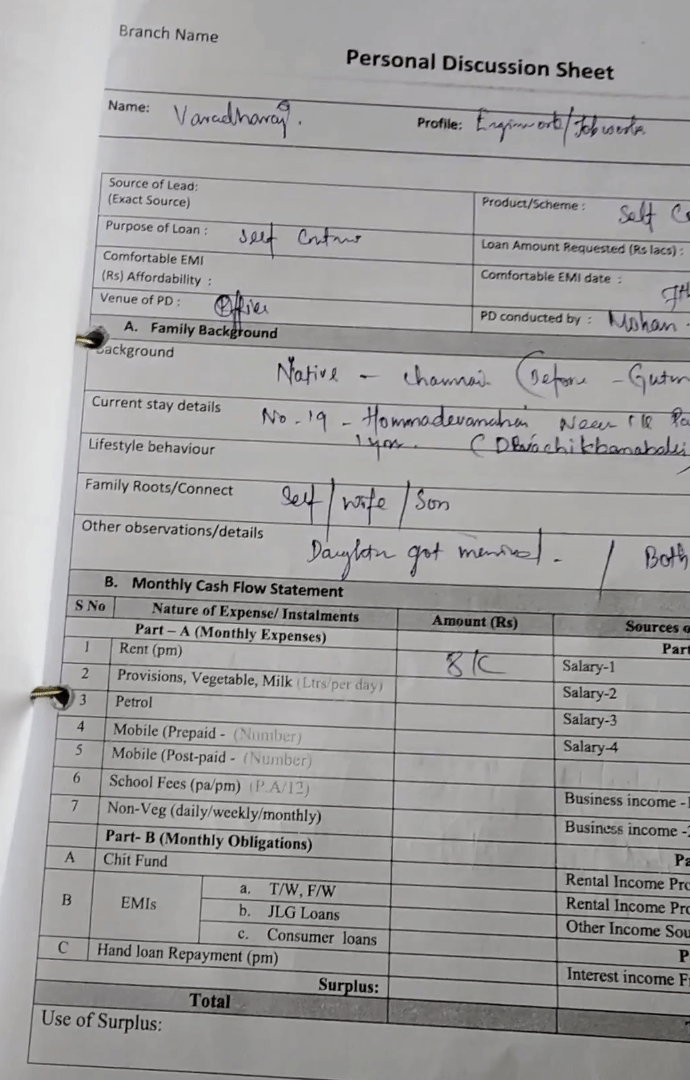 Branch Name
Personal Discussion Sheet
Name: Varadharaj.
Profile: /Job works
Source of Lead:
(Exact Source)
Product/Scheme : Self
Purpose of Loan : Self
Loan Amount Requested (Rs lacs) :
Comfortable EMI
(Rs) Affordability :
Comfortable EMI date : 7th
Venue of PD : Office
PD conducted by : Mohan
A. Family Background
Background
Native - (Before -
Current stay details
No - 19 - Near
Lifestyle behaviour
Family Roots/Connect Self / Wife / Son
Other observations/details
got / Both
B. Monthly Cash Flow Statement
S No Nature of Expense/ Instalments Amount (Rs) Sources
Part – A (Monthly Expenses)
1 Rent (pm) 8K Salary-1
2 Provisions, Vegetable, Milk (Ltrs/per day) Salary-2
3 Petrol Salary-3
4 Mobile (Prepaid - (Number) Salary-4
5 Mobile (Post-paid - (Number)
6 School Fees (pa/pm) (P.A/12) Business income -
7 Non-Veg (daily/weekly/monthly) Business income -
Part- B (Monthly Obligations)
A Chit Fund Rental Income
B EMIs a. T/W, F/W Rental Income
b. JLG Loans Other Income
c. Consumer loans
C Hand loan Repayment (pm) Interest income
Surplus:
Total
Use of Surplus: